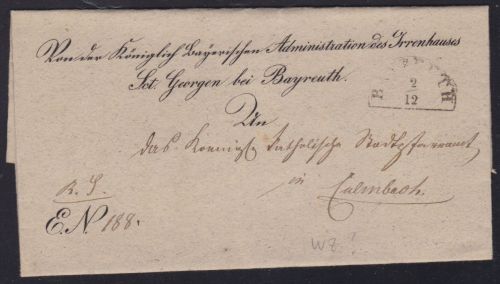 Von der Königlich Bayerischen Administration des Irrenhauses
Sct. Georgen bei Bayreuth.
BAYREUTH
2
12
An
das Koenigl. katholische Stadtpfarramt
in
Culmbach.
R. S.
E. N. 188.
WZ?